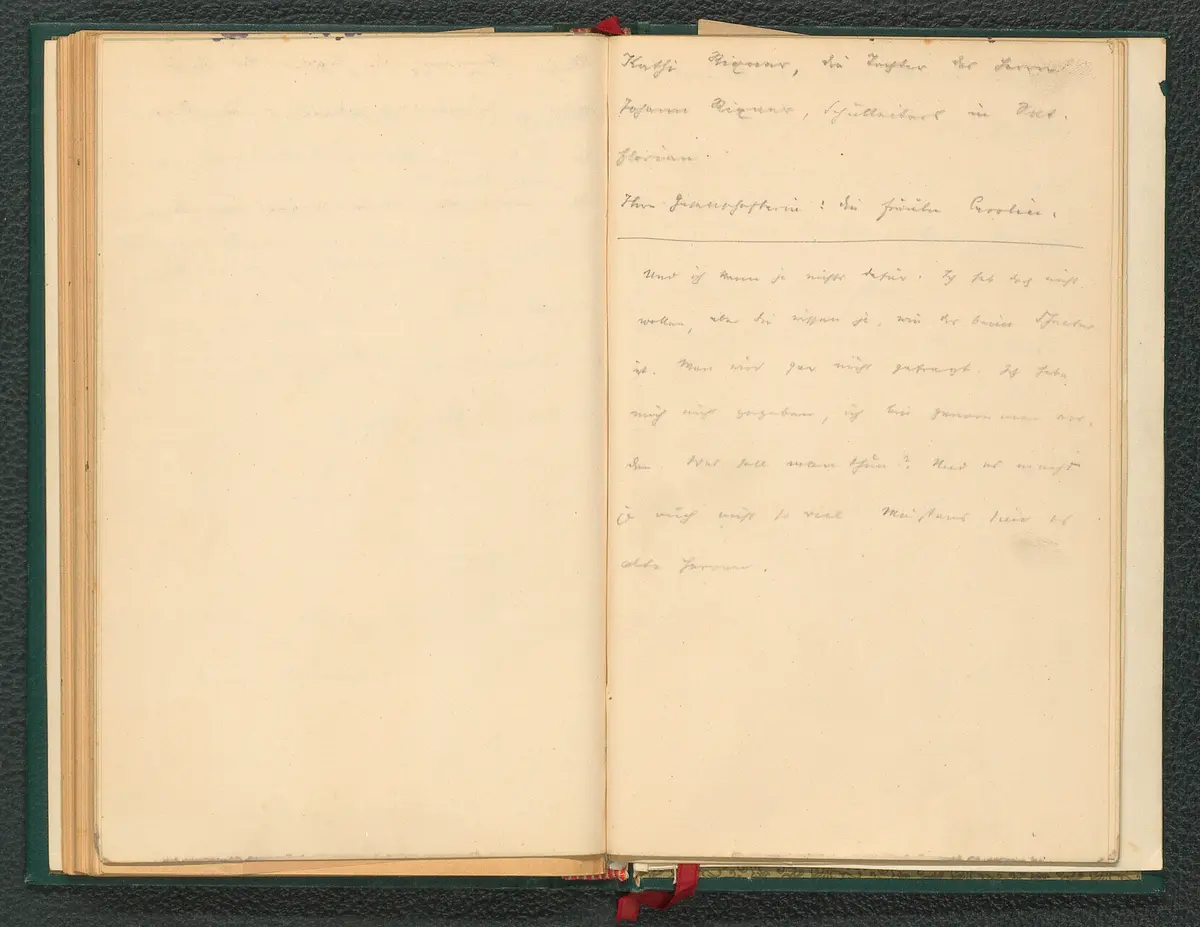 Kathi Rixner, die Tochter des Herrn
Johann Rixner, Schulleiters in Skt.
Florian.
Ihre Gesellschafterin: die Fräuln Carolin.
Und ich kann ja nichts dafür. Ich hab doch nicht
wollen, aber Sie wissen ja, wie der
ist. Man wird gar nicht gefragt. Ich habe
mich nicht gegeben, ich bin genommen wor-
den. Was soll man thun? Und es macht
ja auch nicht so viel. Meistens sind es
alte Herren.